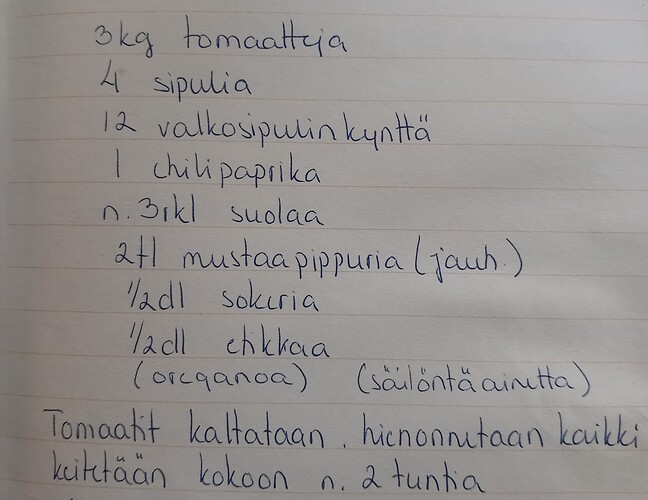 3kg tomaatteja
4 sipulia
12 valkosipulin kynttä
1 chilipaprika
n. 3rkl suolaa
2tl mustaapippuria (jauh.)
1/2dl sokeria
1/2dl etikkaa
(oreganoa) (säilöntäainetta)
Tomaatit kaltataan. hienonnetaan kaikki
keitetään kokoon n. 2 tuntia